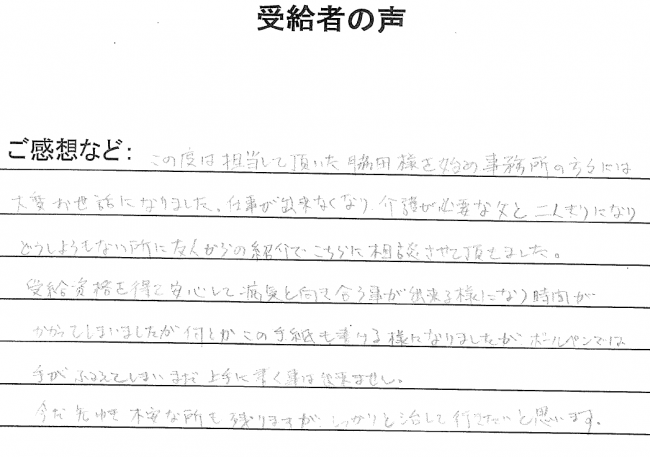 受給者の声
ご感想など： この度は担当して頂いた脇田様を始め事務所の方々には
大変お世話になりました。仕事が出来なくなり、介護が必要な父と二人きりになり
どうしようもない所に友人からの紹介でこちらに相談させて頂きました。
受給資格を得て安心して病気と向き合う事が出来る様になり時間が
かかってしまいましたが何とかこの手紙も書ける様になりましたが、ボールペンでは
手がふるえてしまいまだ上手に書く事は出来ません。
今だ先行き不安な所も残りますが、しっかりと治して行きたいと思います。